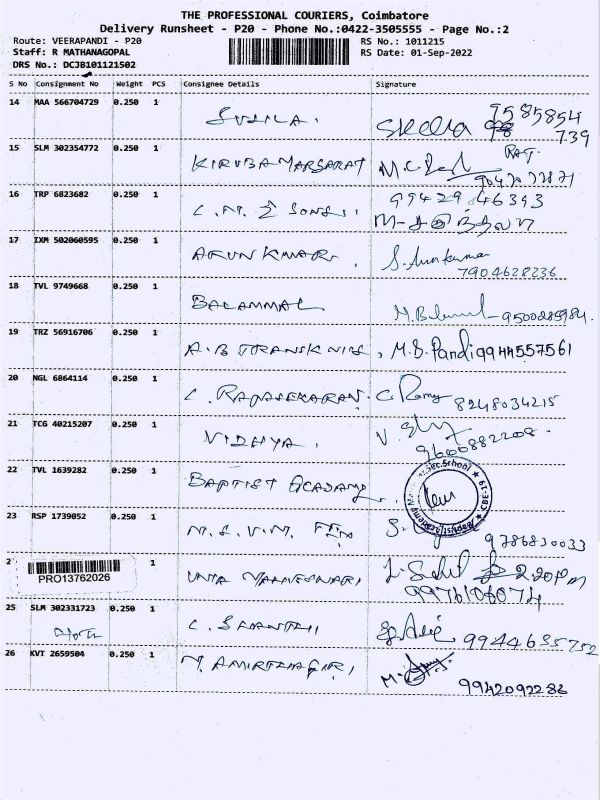 THE PROFESSIONAL COURIERS, Coimbatore
Delivery Runsheet - P20 - Phone No.:0422-3505555 - Page No.:2
Route: VEERAPANDI - P20
RS No.: 1011215
Staff: R MATHANAGOPAL
RS Date: 01-Sep-2022
DRS No.: DCJB101121502
S No Consignment No Weight PCS Consignee Details Signature
14 MAA 566704729 0.250 1 9585854
SUSILA. 739
15 SLM 302354772 0.250 1
KIRUBA MARGARAT
16 TRP 6823682 0.250 1 99429 46393
C.M. & SONS
17 IXM 502060595 0.250 1
ARUN KUMAR. S. Arunkumar
7904628236
18 TVL 9749668 0.250 1
BALAMMAL
19 TRZ 56916706 0.250 1
A.B TRANSK M.B. Pandi 9944557561
20 NGL 6864114 0.250 1
C. RAJASEKARAN. C. Ramy 8248034215
21 TCG 40215207 0.250 1
VIDHYA. 9600882208.
22 TVL 1639282 0.250 1
BAPTIST ACADAMY Sec.School CBE-19
23 RSP 1739052 0.250 1
M.S.V.M. FIN 9786830033
2 1
PRO13762026
UMA MAHESWARI 2.20pm
25 SLM 302331723 0.250 1
C. SHANTHI 9944635752
26 KVT 2659504 0.250 1
AMIRTHAGIRI
9942092286